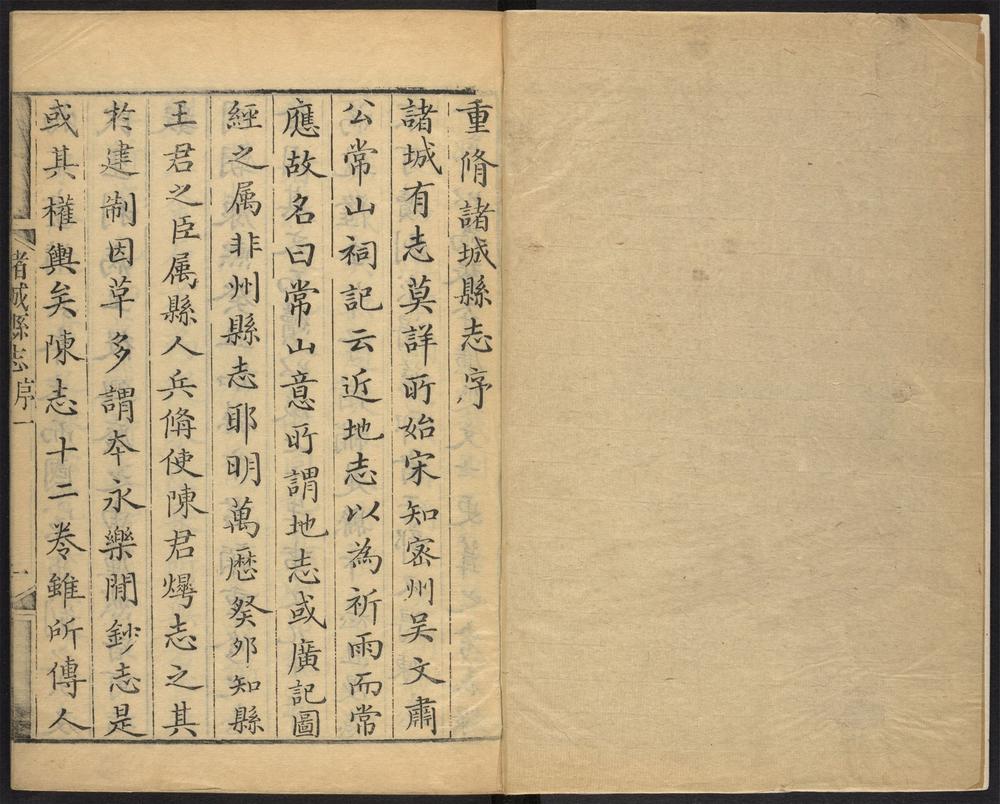 重脩諸城縣志序
諸城有志莫詳所始宋知密州吴文肅
公常山祠記云近地志以為祈雨而常
應故名曰常山意所謂地志或廣記圖
經之属非州縣志耶明萬厯癸夘知縣
王君之臣属縣人兵脩使陳君燁志之其
扵建制因草多謂夲永樂閒鈔志是
或其權輿矣陳志十二卷雖所傳人
諸城縣志序一